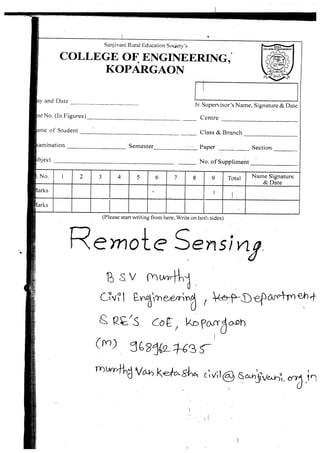 Sanjivani Rural Education Society's
COLLEGE OF ENGINEERING,
KOPARGAON
ay and Date
Jr. Supervisor's Name, Signature & Date
No. (In Figures) Centre
ame of Student Class & Branch
amination Semester Paper Section
bject No. of Suppliment
No. 1 2 3 4 5 6 7 8 9 Total Name Signature & Date
arks
arks
(Please start writing from here, Write on both sides)
Remote Sensing
B S V Murthy
Civil Engineering, Department
SRE'S CoE, Kopargaon
(M) 9689627635
civil@sanjivani.org.in